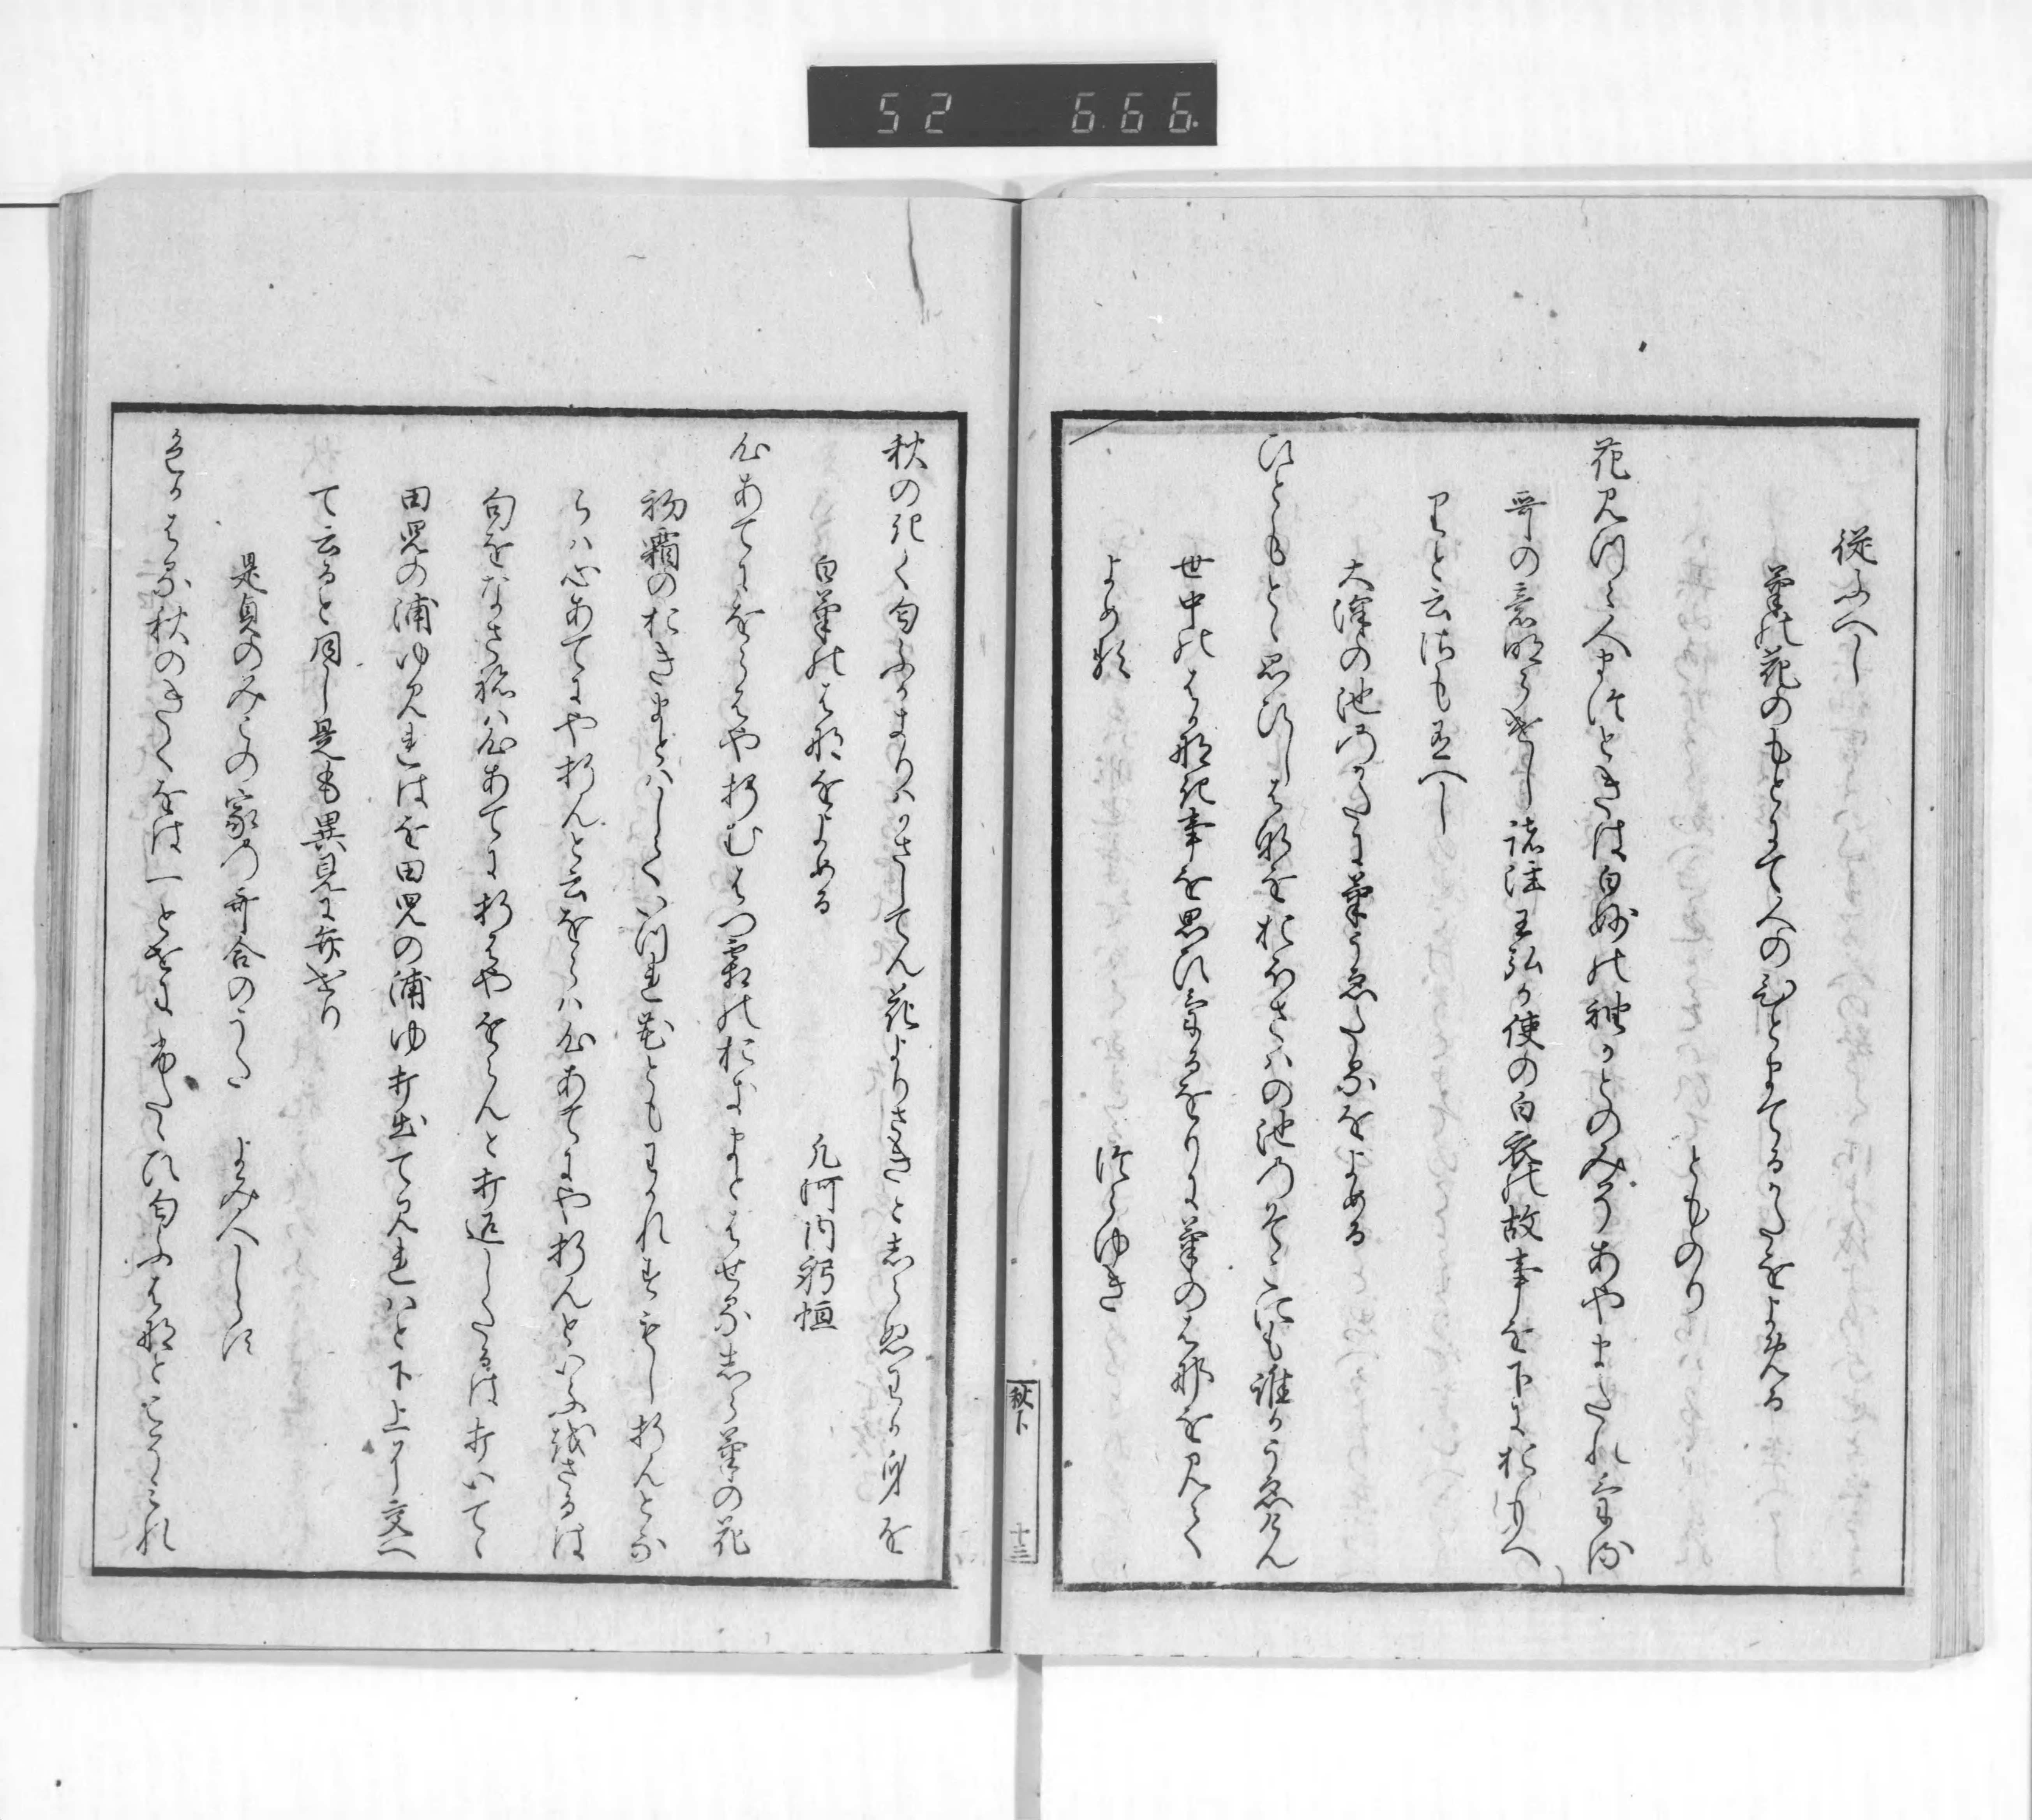 52 666
従ふへし
菊の花のもとにて人のひとまてるかたをよめる
とものり
花見つゝ人まつときは白妙の袖かとのみそあやまたれける
哥の意明らけし諸注王弘か使の白衣の故事を下におもへ
りと云はも有へし
大澤の池のかたに菊うゑたるをよめる
ひともとゝ思ひしはなをおほさはの池のそこにも誰かうゑけん
世中のはかなき事を思ひけるをりに菊のはなを見て
よめる
つらゆき
秋下
十三
秋のきく匂ふかきりはかさしてん花よりさきとしらぬわか身を
白菊のはなをよめる
凡河内躬恒
心あてにをらはや折むはつ霜のおきまとはせるしら菊の花
初霜のおきまとはしていつれ花ともわかれすもし折んとな
らハ心あてにや折んと云をらハ心あてにや折んといふ哉さるは
句をなさねハ心あてに折はやをらんと打返したるは打いてゝ
田児の浦ゆ見れはを田児の浦ゆ打出て見れハと下上にし交へ
て云ると同し是も異見に弁せり
是貞のみこの家の哥合のうた
よみ人しらす
色かはる秋のきくをは一とせにふたゝひ匂ふはなとこそみれ